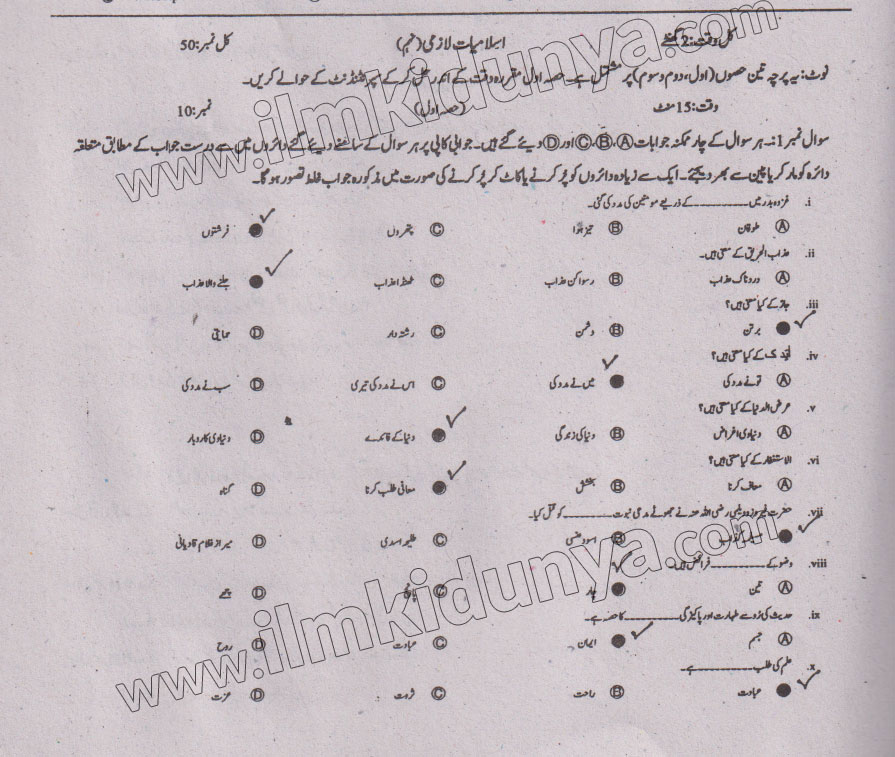 کل وقت: 2 گھنٹے اسلامیات لازمی (نہم) کل نمبر: 50
نوٹ: یہ پرچہ تین حصوں (اول، دوم و سوم) پر مشتمل ہے۔ حصہ اول مقررہ وقت کے اندر حل کر کے سپرنٹنڈنٹ کے حوالے کریں۔
وقت: 15 منٹ (حصہ اول) نمبر: 10
سوال نمبر 1:۔ ہر سوال کے چار ممکنہ جوابات Ⓐ، Ⓑ، Ⓒ اور Ⓓ دیئے گئے ہیں۔ جوابی کاپی پر ہر سوال کے سامنے دیئے گئے دائروں میں سے درست جواب کے مطابق متعلقہ
دائرہ کو مارکر یا پین سے بھر دیجئے۔ ایک سے زیادہ دائروں کو پُر کرنے یا کاٹ کر پُر کرنے کی صورت میں مذکورہ جواب غلط تصور ہو گا۔
i. غزوہ بدر میں ـــــــــــ کے ذریعے مومنین کی مدد کی گئی۔
Ⓐ طوفان Ⓑ تیز ہوا Ⓒ پتھروں ● فرشتوں
ii. عذاب الحریق کے معنی ہیں۔
Ⓐ دردناک عذاب Ⓑ رسوا کن عذاب Ⓒ ٹھنڈا عذاب ● جلنے والا عذاب
iii. جاز کے کیا معنی ہیں؟
● برتن Ⓑ دشمن Ⓒ رشتہ دار Ⓓ حمایتی
iv. اَیَّدَکَ کے کیا معنی ہیں؟
Ⓐ تو نے مدد کی ● میں نے مدد کی Ⓒ اس نے مدد کی تیری Ⓓ سب نے مدد کی
v. عرض الدنیا کے کیا معنی ہیں؟
Ⓐ دنیاوی اغراض Ⓑ دنیا کی زندگی ● دنیا کے فائدے Ⓓ دنیاوی کاروبار
vi. الاستغفار کے کیا معنی ہیں؟
Ⓐ معاف کرنا Ⓑ بخشش ● معافی طلب کرنا Ⓓ گناہ
vii. حضرت فیروز دیلمی رضی اللہ عنہ نے جھوٹے مدعی نبوت ـــــــــــ کو قتل کیا۔
● مسیلمہ کذاب Ⓑ اسود عنسی Ⓒ طلیحہ اسدی Ⓓ میرزا غلام قادیانی
viii. وضو کے ـــــــــــ فرائض ہیں۔
Ⓐ تین ● چار Ⓒ پانچ Ⓓ چھے
ix. حدیث کی رو سے طہارت اور پاکیزگی ـــــــــــ کا حصہ ہے۔
Ⓐ جسم ● ایمان Ⓒ عبادت Ⓓ روح
x. علم کی طلب ـــــــــــ ہے۔
● عبادت Ⓑ راحت Ⓒ ثروت Ⓓ عزت
www.ilmkidunya.com
www.ilmkidunya.com